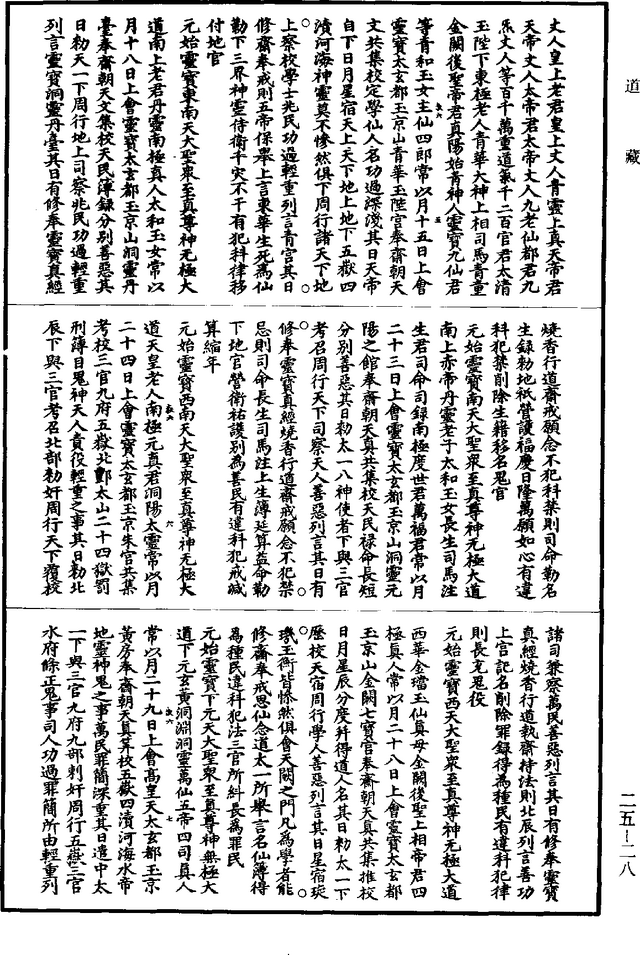 道藏
丈人皇上老君皇上丈人青靈上真天帝君
天帝丈人太帝君太帝丈人九老仙都君九
炁丈人等百千萬重道氣千二百官君太清
玉陛下東極老人青華大神上相司馬青童
金闕後聖帝君真陽始青神人靈寶九仙君
等青和玉女主仙四郎常以月十五日上會
靈寶太玄都玉京山青華玉陛宮奉齋朝天
文共集校定學仙人名功過深淺其日天帝
自下日月星宿天上天下地上地下五嶽四
瀆河海神靈莫不慘然俱下周行諸天下地
上察校學士兆民功過輕重列言青宮其日
修齋奉戒則五帝保舉上言東華生死為仙
勑下三界神靈侍衛千灾不干有犯科律移
付地官
元始靈寶東南天大聖衆至真尊神無極大
道南上老君丹靈南極真人太和玉女常以
月十八日上會靈寶太玄都玉京山洞靈丹
臺奉齋朝天文集校天民簿録分別善惡其
日勑天一下周行地上司察兆民功過輕重
列言靈寶洞靈丹臺其日有修奉靈寶真經
燒香行道齋戒願念不犯科禁則司命勒名
生録勑地祇營護福慶日隆萬願如心有違
科犯禁削除生籍移名鬼官
元始靈寶南天大聖衆至真尊神无極大道
南上赤帝丹靈老子太和玉女長生司馬注
生君司命司録南極度世君萬福君常以月
二十三日上會靈寶太玄都玉京山洞靈元
陽之館奉齋朝天真共集校天民禄命長短
分別善惡其日勑太一八神使者下與三官
考召周行天下司察天人善惡列言其日有
修奉靈寶真經燒香行道齋戒願念不犯禁
忌則司命長生司馬注上生簿延算益命勒
下地官營衛祐護別為善民有違科犯戒減
算縮年
元始靈寶西南天大聖衆至真尊神无極大
道天皇老人南極元真君洞陽太靈常以月
二十四日上會靈寶太玄都玉京朱宮共集
考校三官九府五嶽北酆太山二十四獄罰
刑簿目鬼神天人責役輕重之事其日勑北
辰下與三官考召北部勑奸周行天下覆校
諸司兼察萬民善惡列言其日有修奉靈寶
真經燒香行道執齋持法則北辰列言善功
上宮記名削除罪録得為種民有違科犯律
則長充鬼役
元始靈寶西天大聖衆至真尊神无極大道
西華金璫玉仙真母金闕後聖上相帝君四
極真人常以月二十八日上會靈寶太玄都
玉京山金闕七寶宮奉齋朝天真共集推校
日月星辰分度并得道人名其日勑太一下
歷校天宿周行學人善惡列言其日星宿琁
璣玉衡皆悚然俱會天闕之門凡為學者能
修齋奉戒思仙念道太一所舉言名仙簿得
為種民違科犯法三官所糾長為罪民
元始靈寶下元天大聖衆至真尊神無極大
道下元玄黄洞淵洞靈萬仙五帝四司真人
常以月二十九日上會高皇天太玄都玉京
黄房奉齋朝天真算校五嶽四瀆河海水帝
地靈神鬼之事萬民罪簡深重其日遣中太
一下與三官九府九部刺奸周行五嶽三官
水府條正鬼事司人功過罪簡所由輕重列
二五—二八